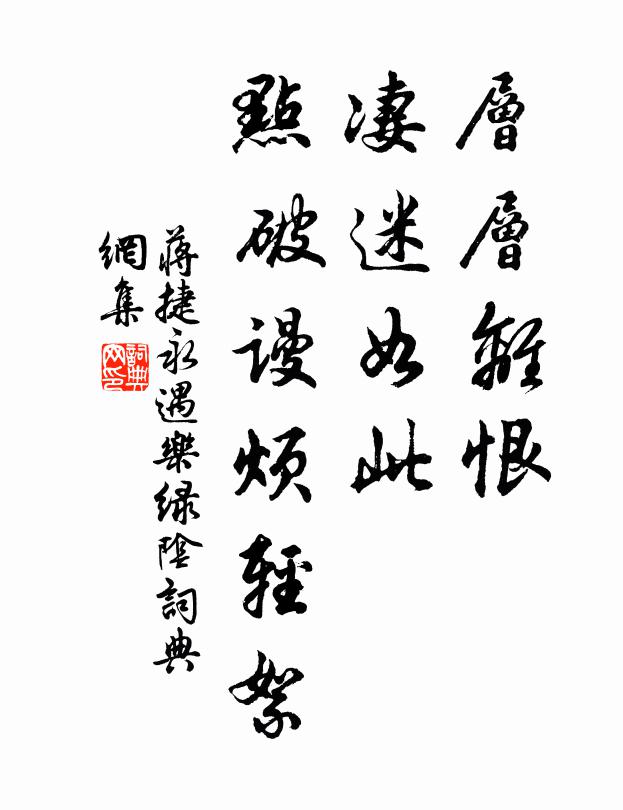 層層離恨
凄迷如此
點破謾煩輕絮
蔣捷永遇樂綠陰詞典
網集
詞典
网印